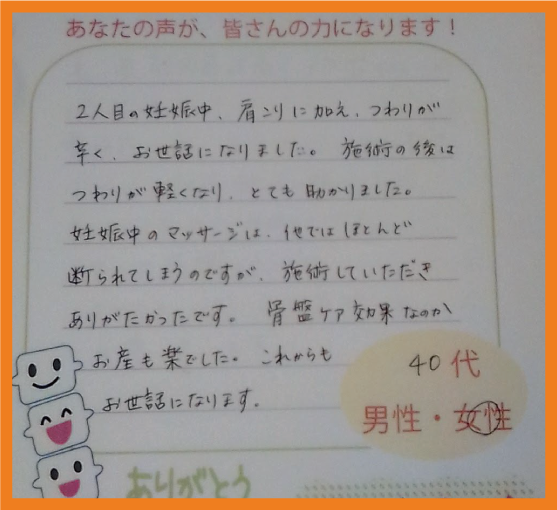 あなたの声が、皆さんの力になります！
2人目の妊娠中、肩こりに加え、つわりが
辛く、お世話になりました。施術の後は
つわりが軽くなり、とても助かりました。
妊娠中のマッサージは、他ではほとんど
断られてしまうのですが、施術していただき
ありがたかったです。骨盤ケア効果なのか
お産も楽でした。これからも
お世話になります。
40代
男性・女性
ありがとう